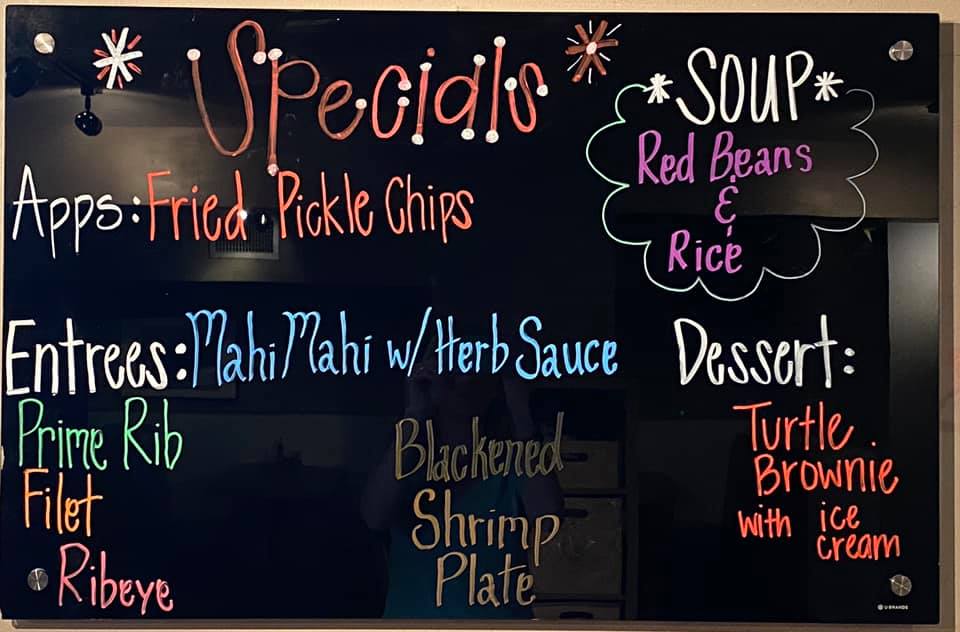 Specials
Apps: Fried Pickle Chips
SOUP
Red Beans
&
Rice
Entrees: Mahi Mahi w/ Herb Sauce
Prime Rib
Filet
Ribeye
Blackened
Shrimp
Plate
Dessert:
Turtle
Brownie
with ice
cream
U BRANDS